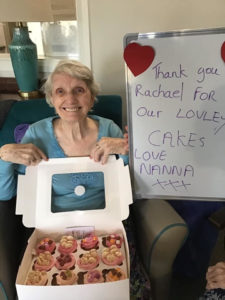 Thank you
Rachael FOR
Our LOVLEY
CAKEs
LOVE
NANNA
xxx